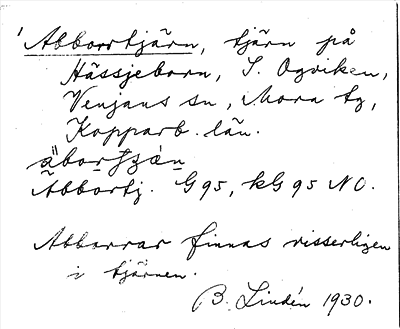 Abborrtjärn, tjärn på
Hässjeborn, S. Ogviken,
Venjans sn, Mora tg,
Kopparb. län.
Abbortj. G95, kG95 NO.
Abborrar finnas visserligen
i tjärnen.
B. Lindén 1930.